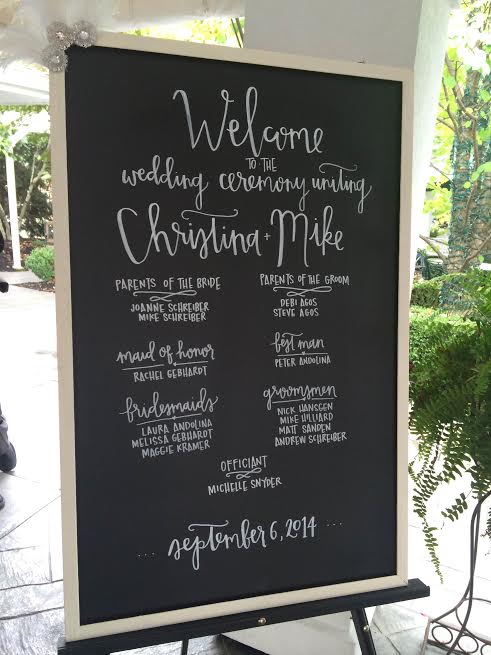 Welcome
TO THE
wedding ceremony uniting
Christina + Mike
PARENTS OF THE BRIDE
JOANNE SCHREIBER
MIKE SCHREIBER
PARENTS OF THE GROOM
DEBI AGOS
STEVE AGOS
maid of honor
RACHEL GEBHARDT
best man
PETER ANDOLINA
bridesmaids
LAURA ANDOLINA
MELISSA GEBHARDT
MAGGIE KRAMER
groomsmen
NICK HANSGEN
MIKE HILLIARD
MATT SANDEN
ANDREW SCHREIBER
OFFICIANT
MICHELLE SNYDER
... september 6, 2014 ...